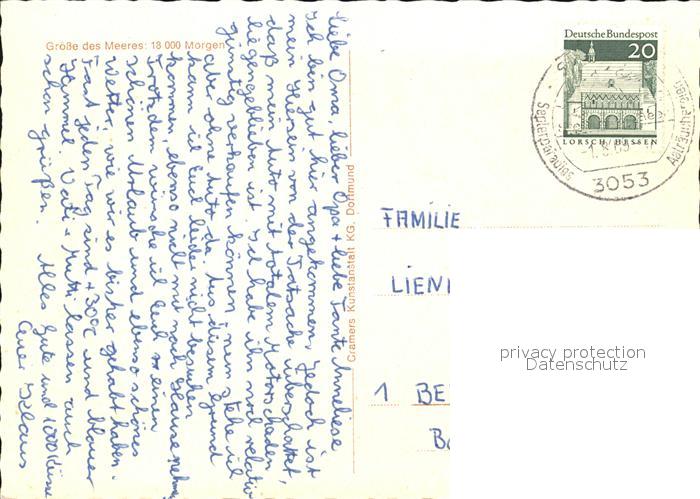 Größe des Meeres: 18 000 Morgen
Liebe Oma, lieber Opa + liebe Tante Anneliese
Ich bin gut hier angekommen, jedoch ist
mein Hiersein von der Tatsache überschattet,
daß mein Auto mit totalem Motorschaden
liegengeblieben ist. Ich habe ihn noch relativ
günstig verkaufen können, nun stehe ich
aber ohne Auto da. Aus diesem Grund
kann ich Euch leider nicht besuchen
kommen, ebenso nicht mit nach Hause nehmen
Trotzdem wünsche ich Euch einen
schönen Urlaub und ebenso schönes
Wetter, wie wir es bisher gehabt haben.
Fast jeden Tag sind +30°C und blauer
Himmel. Vati + Mutti lassen auch
schön grüßen. Alles Gute und 1000 Küsse
Euer Klaus
Cramers Kunstanstalt KG, Dortmund
Deutsche Bundespost
20
LORSCH/HESSEN
3053
FAMILIE
LIEN
1 BE
privacy protection
Datenschutz